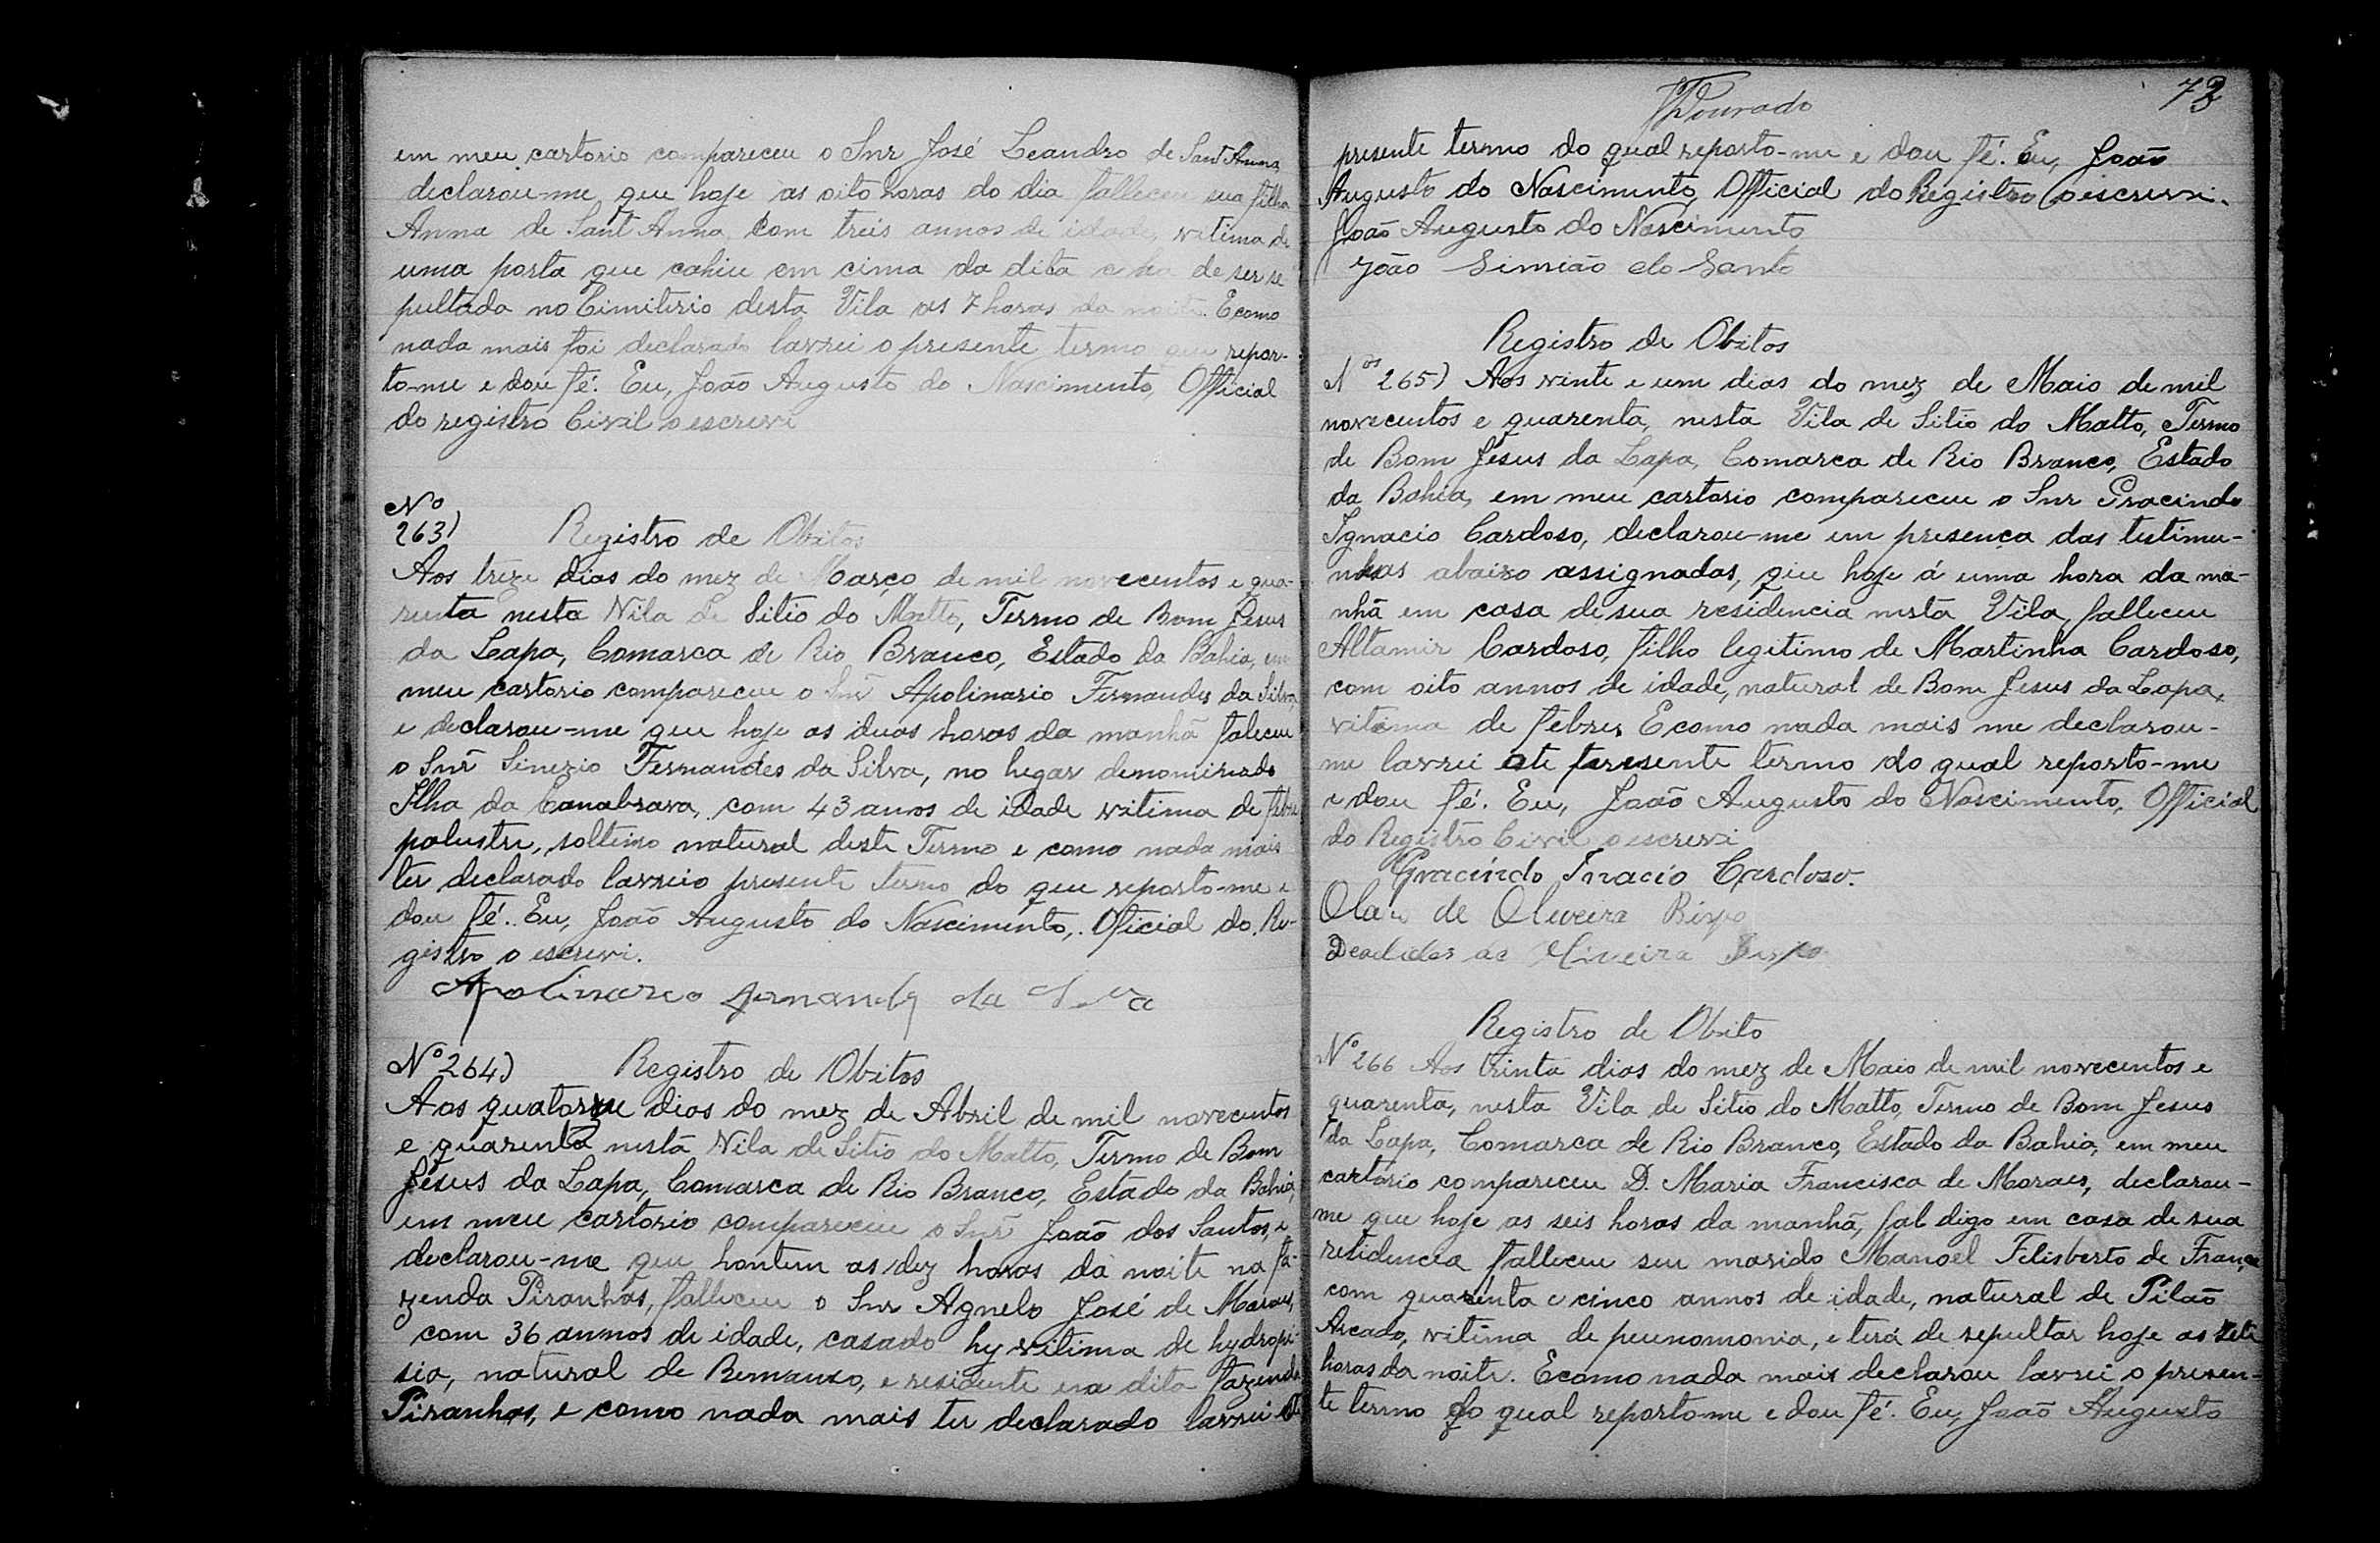 em meu cartorio compareceu o Snr José Leandro de Sant Anna,
declarou-me que hoje as oito horas do dia falleceu sua filha
Anna de Sant Anna com treis annos de idade, vitima de
uma porta que cahiu em cima da dita e ha de ser se
pultada no Cimiterio desta Vila as 7 horas da noite. E como
nada mais foi declarado lavrei o presente termo que repor-
to-me e dou fé. Eu, João Augusto do Nascimento, Official
do registro Civil o escrevi
Nº
263)
Registro de Obitos
Aos treze dias do mez de Março de mil novecentos e qua-
renta nesta Vila de Sitio do Matto, Termo de Bom Jesus
da Lapa, Comarca de Rio Branco, Estado da Bahia, em
meu cartorio compareceu o Snr Apolinario Fernandes da Silva
e declarou-me que hoje as duas horas da manhã faleceu
o Snr Sinezio Fernandes da Silva, no lugar denominado
Ilha da Canabrava, com 43 anos de idade vitima de febre
palustre, solteiro natural deste Termo e como nada mais
ter declarado lavrei o presente termo do que reporto-me e
dou fé. Eu, João Augusto do Nascimento, Oficial do Re-
gistro o escrevi.
Apolinareo Fernandes da Silva
Nº 264)
Registro de Obitos
Aos quatorze dias do mez de Abril de mil novecentos
e quarenta nesta Vila de Sitio do Matto, Termo de Bom
Jesus da Lapa, Comarca de Rio Branco, Estado da Bahia,
em meu cartorio compareceu o Snr João dos Santos, e
declarou-me que hontem as dez horas da noite na fa-
zenda Piranhas, falleceu o Snr Agnelo José de Moraes,
com 36 annos de idade, casado hy vitima de hydropi-
sia, natural de Remanso, e residente na dita fazenda
Piranhas, e como nada mais ter declarado lavrei
73
Dourado
presente termo do qual reporto-me e dou fé. Eu, João
Augusto do Nascimento, Official do Registro o escrevi.
João Augusto do Nascimento
João Simião do Santo
Registro de Obitos
Nº 265) Aos vinte e um dias do mez de Maio de mil
novecentos e quarenta, nesta Vila de Sitio do Matto, Termo
de Bom Jesus da Lapa, Comarca de Rio Branco, Estado
da Bahia, em meu cartorio compareceu o Snr Gracindo
Ignacio Cardoso, declarou-me em presença das testimu-
nhas abaixo assignadas, que hoje á uma hora da ma-
nhã em casa de sua residencia nesta Vila, falleceu
Altamir Cardoso, filho legitimo de Martinha Cardoso,
com oito annos de idade, natural de Bom Jesus da Lapa,
vitima de febres E como nada mais me declarou-
me lavrei este presente termo do qual reporto-me
e dou fé. Eu, João Augusto do Nascimento, Official
do Registro Civil o escrevi
Gracindo Inacio Cardoso.
de Oliveira Bispo
Oliveira Bispo
Registro de Obito
Nº 266 Aos trinta dias do mez de Maio de mil novecentos e
quarenta, nesta Vila de Sitio do Matto, Termo de Bom Jesus
da Lapa, Comarca de Rio Branco, Estado da Bahia, em meu
cartorio compareceu D. Maria Francisca de Moraes, declarou-
me que hoje as seis horas da manhã, fal digo em casa de sua
residencia falleceu seu marido Manoel Felisberto de França
com quarenta e cinco annos de idade, natural de Pilão
Arcado, vitima de peunomonia, e terá de sepultar hoje as sete
horas da noite. E como nada mais declarou lavrei o presen-
te termo do qual reporto-me e dou fé. Eu, João Augusto